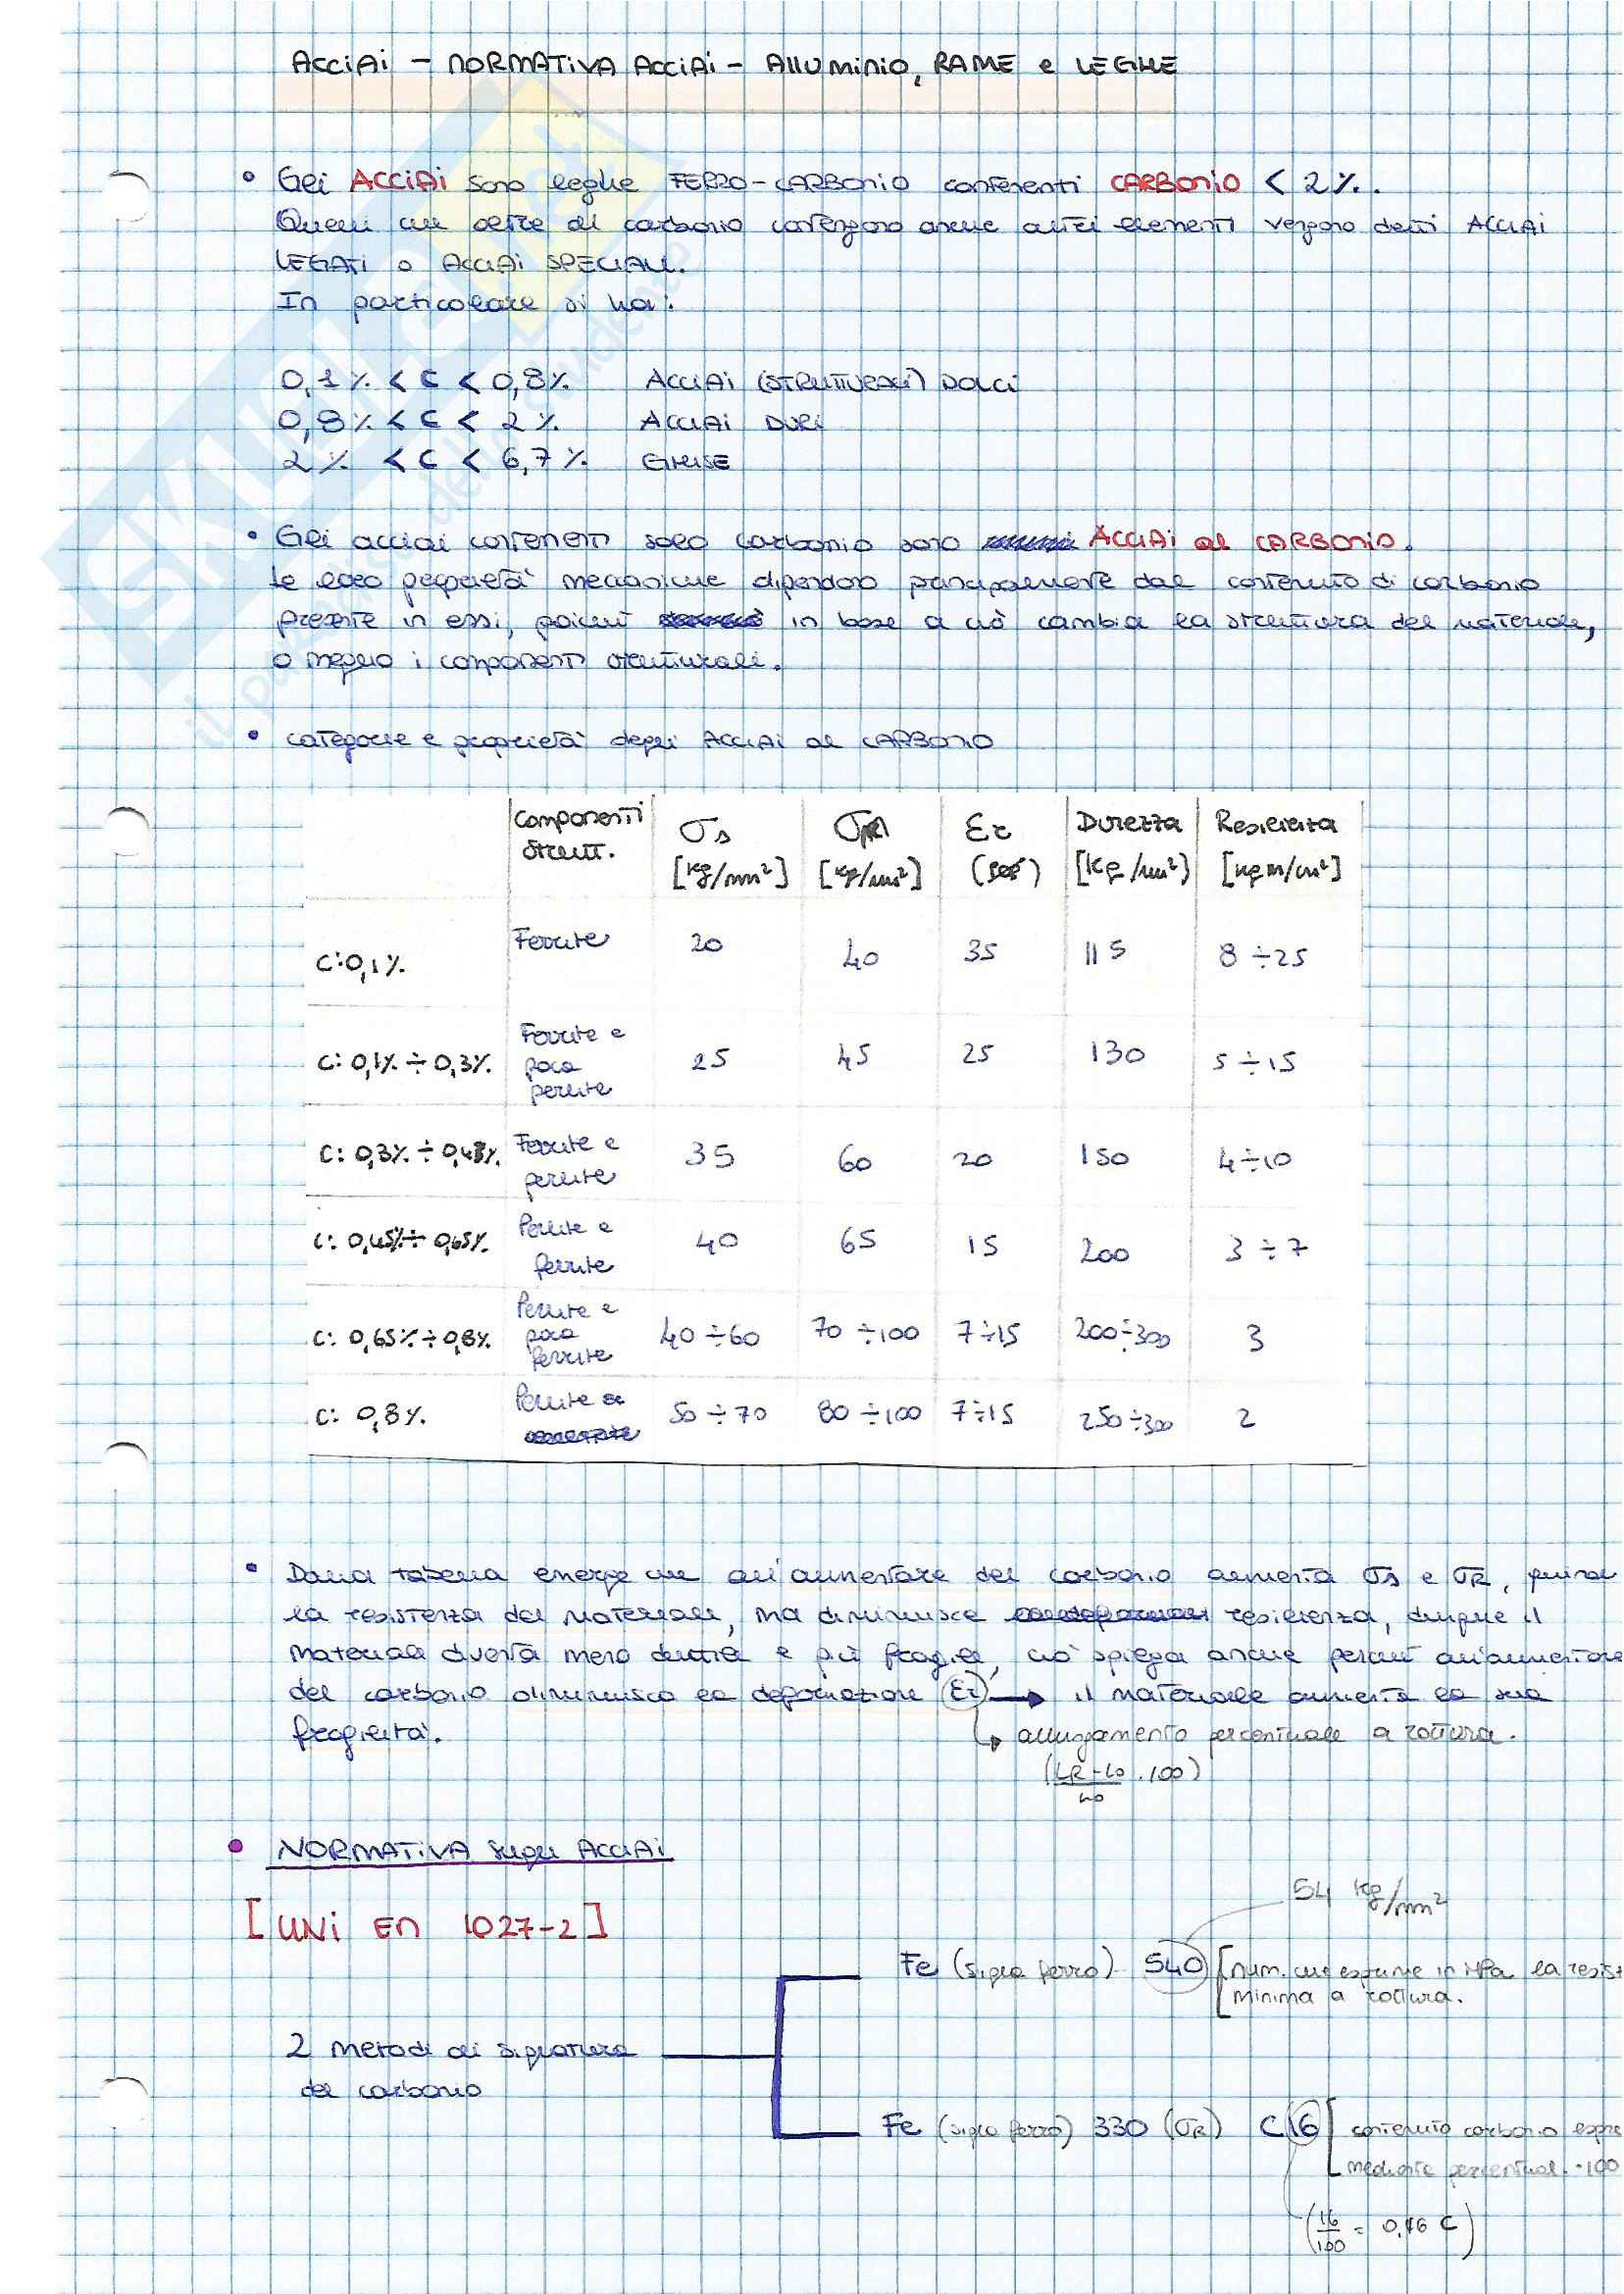 ACCIAI - NORMATIVA ACCIAI - ALLUMINIO, RAME e LEGHE
• Gli ACCIAI sono leghe FERRO-CARBONIO contenenti CARBONIO < 2%.
Quelli che oltre al carbonio contengono anche altri elementi vengono detti ACCIAI
LEGATI o ACCIAI SPECIALI.
In particolare si ha:
0,1% < C < 0,8% ACCIAI (STRUTTURALI) DOLCI
0,8% < C < 2% ACCIAI DURI
2% < C < 6,7% GHISE
• Gli acciai contenenti solo carbonio sono ACCIAI al CARBONIO.
le loro proprietà meccaniche dipendono principalmente dal contenuto di carbonio
presente in essi, poiché in base a ciò cambia la struttura del materiale,
o meglio i componenti strutturali.
• categorie e proprietà degli ACCIAI al CARBONIO
Componenti strutt. σs [kg/mm²] σR [kg/mm²] Er Durezza [kg/mm²] Resilienza [kgm/cm²]
C: 0,1% Ferrite 20 40 35 115 8÷25
C: 0,1% ÷ 0,3% Ferrite e poca perlite 25 45 25 130 5÷15
C: 0,3% ÷ 0,45% Ferrite e perlite 35 60 20 150 4÷10
C: 0,45% ÷ 0,65% Perlite e ferrite 40 65 15 200 3÷7
C: 0,65% ÷ 0,8% Perlite e poca ferrite 40÷60 70÷100 7÷15 200÷300 3
C: 0,8% Perlite 50÷70 80÷100 7÷15 250÷300 2
• Dalla tabella emerge che all'aumentare del carbonio aumenta σs e σR, quindi
la resistenza del materiale, ma diminuisce resilienza, dunque il
materiale diventa meno duttile e più fragile, ciò spiega anche perché all'aumentare
del carbonio diminuisca la deformazione (Er) → il materiale aumenta la sua
fragilità.
↳ allungamento percentuale a rottura.
(LR-L0/L0 . 100)
• NORMATIVA sugli ACCIAI
[UNI EN 1027-2]
54 kg/mm²
Fe (sigla ferro) 540 [num. che esprime in MPa la resist
minima a rottura.
2 metodi di signatura
del carbonio
Fe (sigla ferro) 330 (σR) C 16 [contenuto carbonio espre
mediante percentual. ·100
(16/100 = 0,16 C)